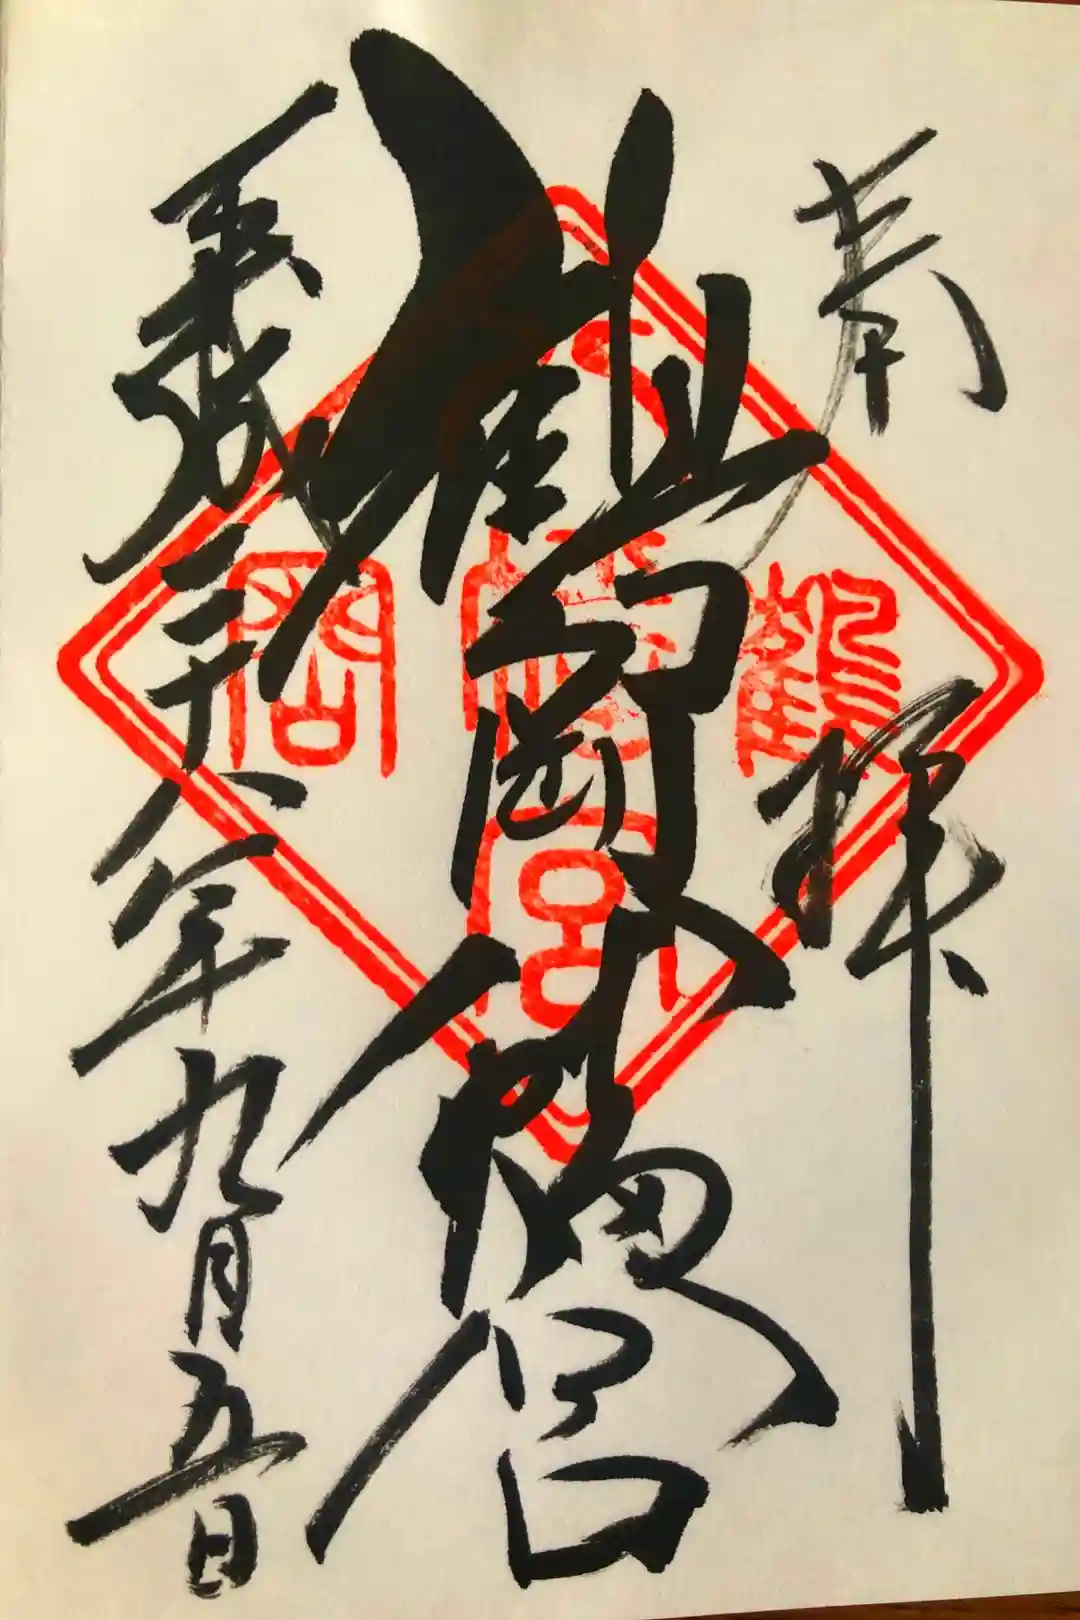 奉拝
鶴岡八幡宮
平成二十八年九月五日
鶴岡八幡宮